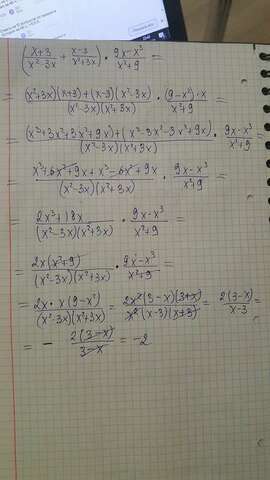 (x+3/x²-3x + x-3/x²+3x) · 9x-x³/x²+9 =
= (x²+3x)(x+3)+(x-3)(x²-3x)/(x²-3x)(x²+3x) · (9-x²)·x/x²+9 =
= (x³+3x²+3x²+9x)+(x³-3x²-3x²+9x)/(x²-3x)(x²+3x) · 9x-x³/x²+9 =
= x³+6x²+9x+x³-6x²+9x/(x²-3x)(x²+3x) · 9x-x³/x²+9 =
= 2x³+18x/(x²-3x)(x²+3x) · 9x-x³/x²+9 =
= 2x(x²+9)/(x²-3x)(x²+3x) · 9x-x³/x²+9 =
= 2x·x(9-x²)/(x²-3x)(x²+3x) = 2x²(3-x)(3+x)/x²(x-3)(x+3) = 2(3-x)/x-3 =
= - 2(3-x)/3-x = -2